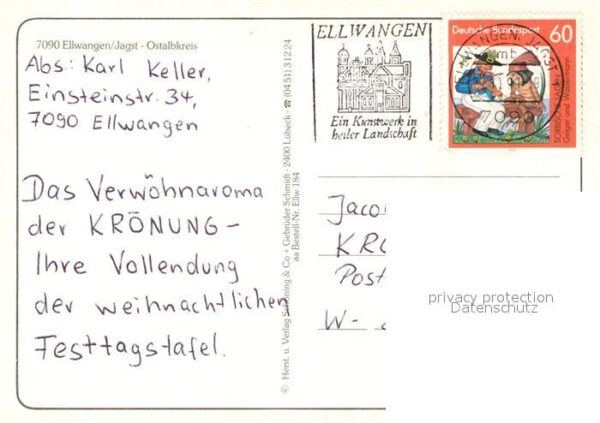 7090 Ellwangen/Jagst - Ostalbkreis
Abs: Karl Keller,
Einsteinstr. 34,
7090 Ellwangen
Das Verwöhnaroma
der KRÖNUNG –
Ihre Vollendung
der weihnachtlichen
Festtagstafel.
© Herst. u. Verlag Schöning & Co + Gebrüder Schmidt · 2400 Lübeck · ☎ (04 51) 3 12 24
aa Bestell-Nr. Ellw 184
ELLWANGEN
Ein Kunstwerk in
heiler Landschaft
ELLWANGEN, JAGST
mb
7090
Deutsche Bundespost
60
SORBISCHE SAGEN:
Geiger und Wassermann
Jaco
KR
Post
W-
privacy protection
Datenschutz